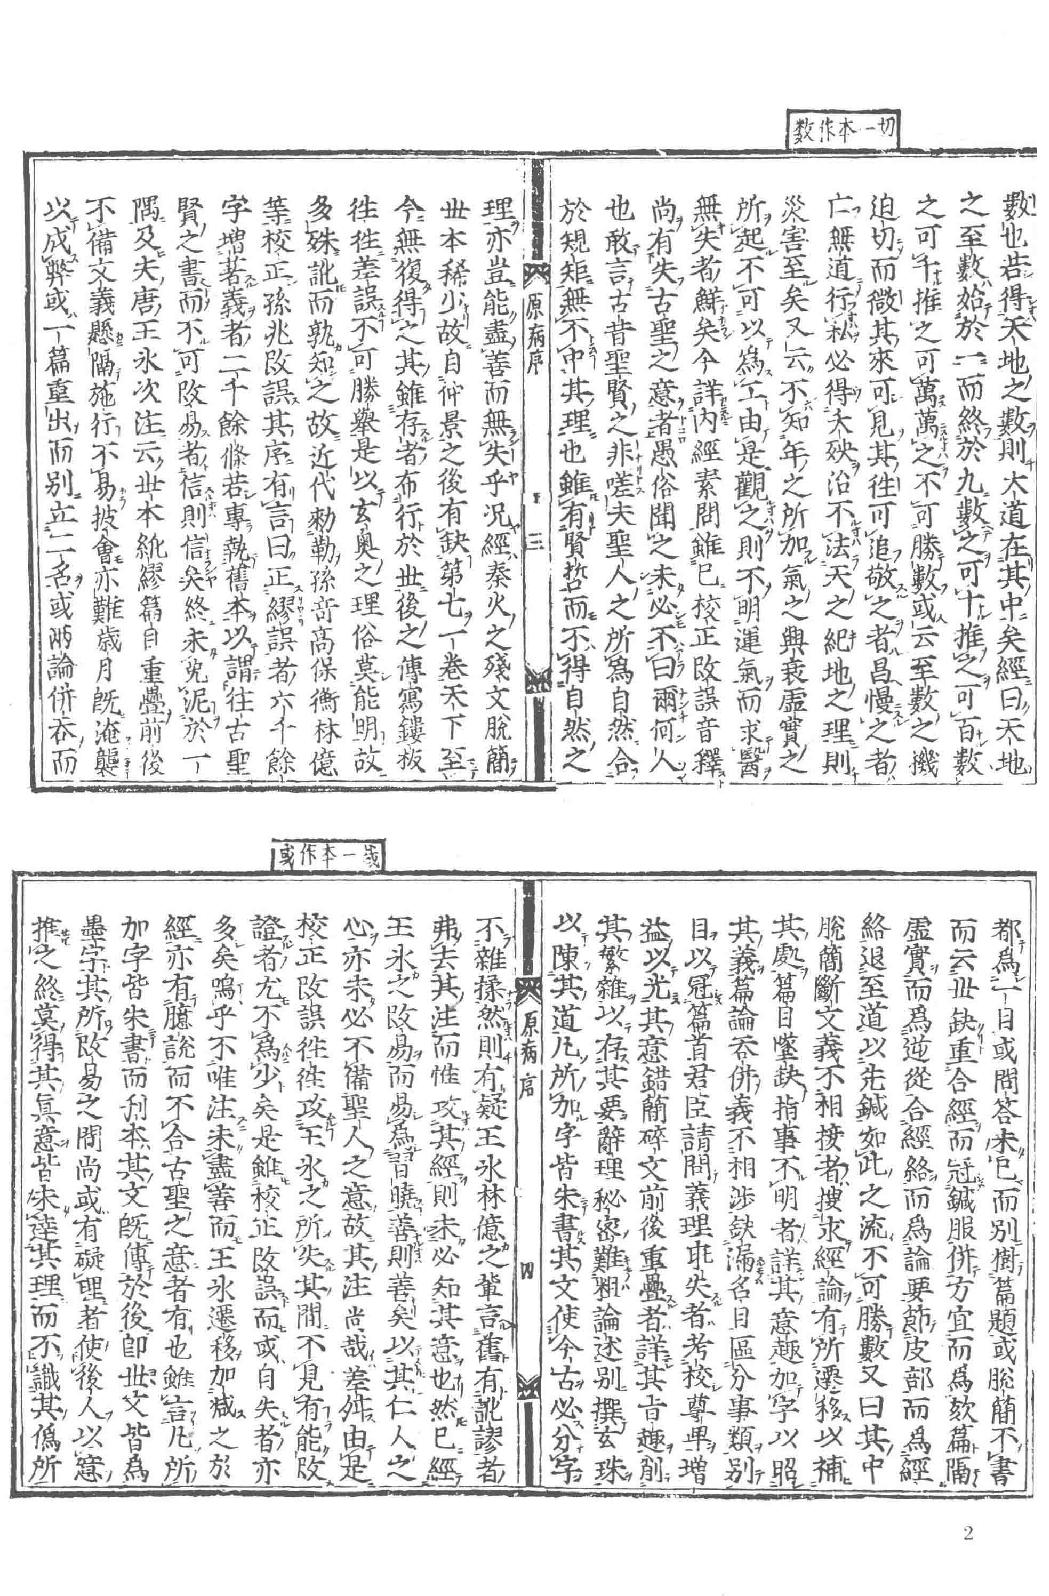 切一本作數
數也若得天地之數則大道在其中矣經曰天地
之至數始於一而終於九數之可十推之可百數
之可千推之可萬萬之不可勝數或云至數之機
迫切而微其來可見其往可追敬之者昌慢之者
亡無道行私必得夭殃治不法天之紀地之理則
災害至矣又云不知年之所加氣之興衰虛實之
所起不可以爲工由是觀之則不明運氣而求醫
無失者鮮矣今詳內經素問雖已校正改誤音釋
尚有失古聖之意者愚俗聞之未必不曰爾何人
也敢言古昔聖賢之非嗟夫聖人之所爲自然合
於規矩無不中其理也雖有賢哲而不得自然之
原病序
三
理亦豈能盡善而無失乎況經秦火之殘文脫簡
世本稀少故自仲景之後有缺第七一卷天下至
今無復得之其雖存者布行於世後之傳寫鏤板
往往差誤不可勝舉是以玄奧之理俗莫能明故
多殊訛而孰知之故近代勅勒孫奇高保衡林億
等校正孫兆改誤其序有言曰正繆誤者六千餘
字增若義者二千餘條若專執舊本以謂往古聖
賢之書而不可改易者信則信矣終未免泥於一
隅及夫唐王氷次注云世本紕繆篇目重疊前後
不備文義懸隔施行不易披會亦難歲月旣淹襲
以成弊或一篇重出而別立二名或兩論併吞而
歲一本作或
都爲一目或問答未已而別樹篇題或脫簡不書
而云世缺重合經而冠鍼服併方宜而爲欬篇隔
虛實而爲逆從合經絡而爲論要節皮部而爲經
絡退至道以先鍼如此之流不可勝數又曰其中
脫簡斷文義不相接者搜求經論有所遷移以補
其處篇目墜缺指事不明者詳其意趣加字以昭
其義篇論吞併義不相涉缺漏名目區分事類別
目以冠篇首君臣請問義理乖失者考校尊卑增
益以光其意錯簡碎文前後重疊者詳其旨趣削
其繁雜以存其要辭理秘密難粗論述別撰玄珠
以陳其道凡所加字皆朱書其文使今古必分字
原病序
四
不雜揉然則有疑王氷林億之輩言舊有訛謬者
弗去其注而惟攻其經則未必知其意也然已經
王氷之改易而易爲習曉善則善矣以其仁人之
心亦未必不備聖人之意故其注尚哉差舛由是
校正改誤往往攻王氷之所失其間不見有能改
證者尤不爲少矣是雖校正改誤而或自失者亦
多矣嗚乎不唯注未盡善而王氷遷移加減之於
經亦有臆說而不合古聖之意者有也雖言凡所
加字皆朱書而刋本其文旣傳於後卽世文皆爲
墨字其所改易之間尚或有礙理者使後人以意
推之終莫得其真意皆未達其理而不識其僞所
2